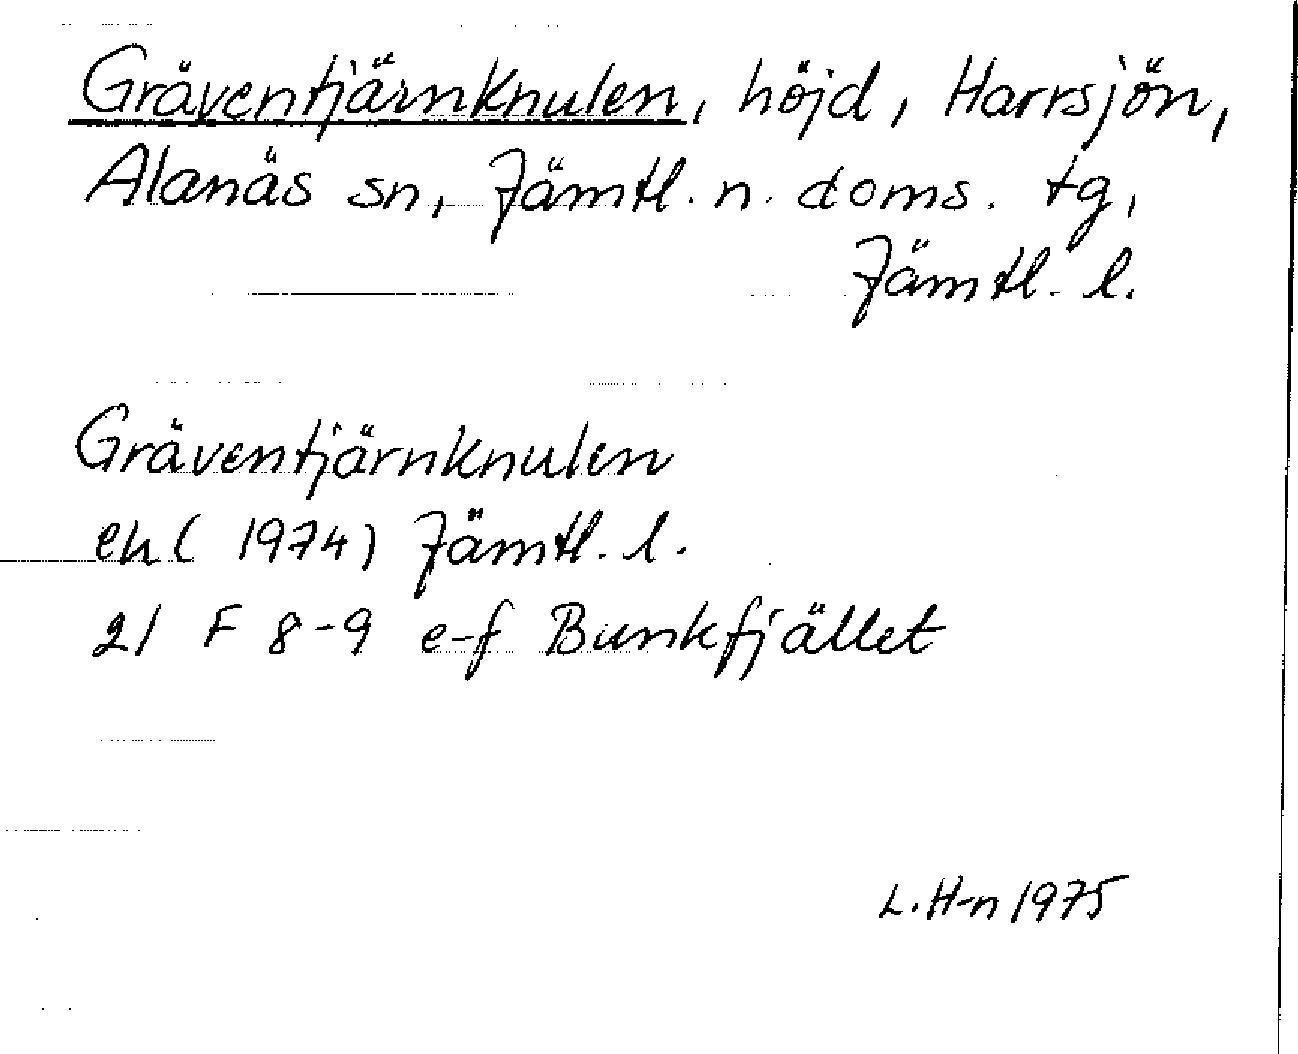 Gräventjärnknulen, höjd, Harrsjön,
Alanäs sn, Jämtl. n. doms. tg,
Jämtl. l.
Gräventjärnknulen
ek (1974) Jämtl. l.
21 F 8-9 e-f Bunkfjället
L. H-n 1975